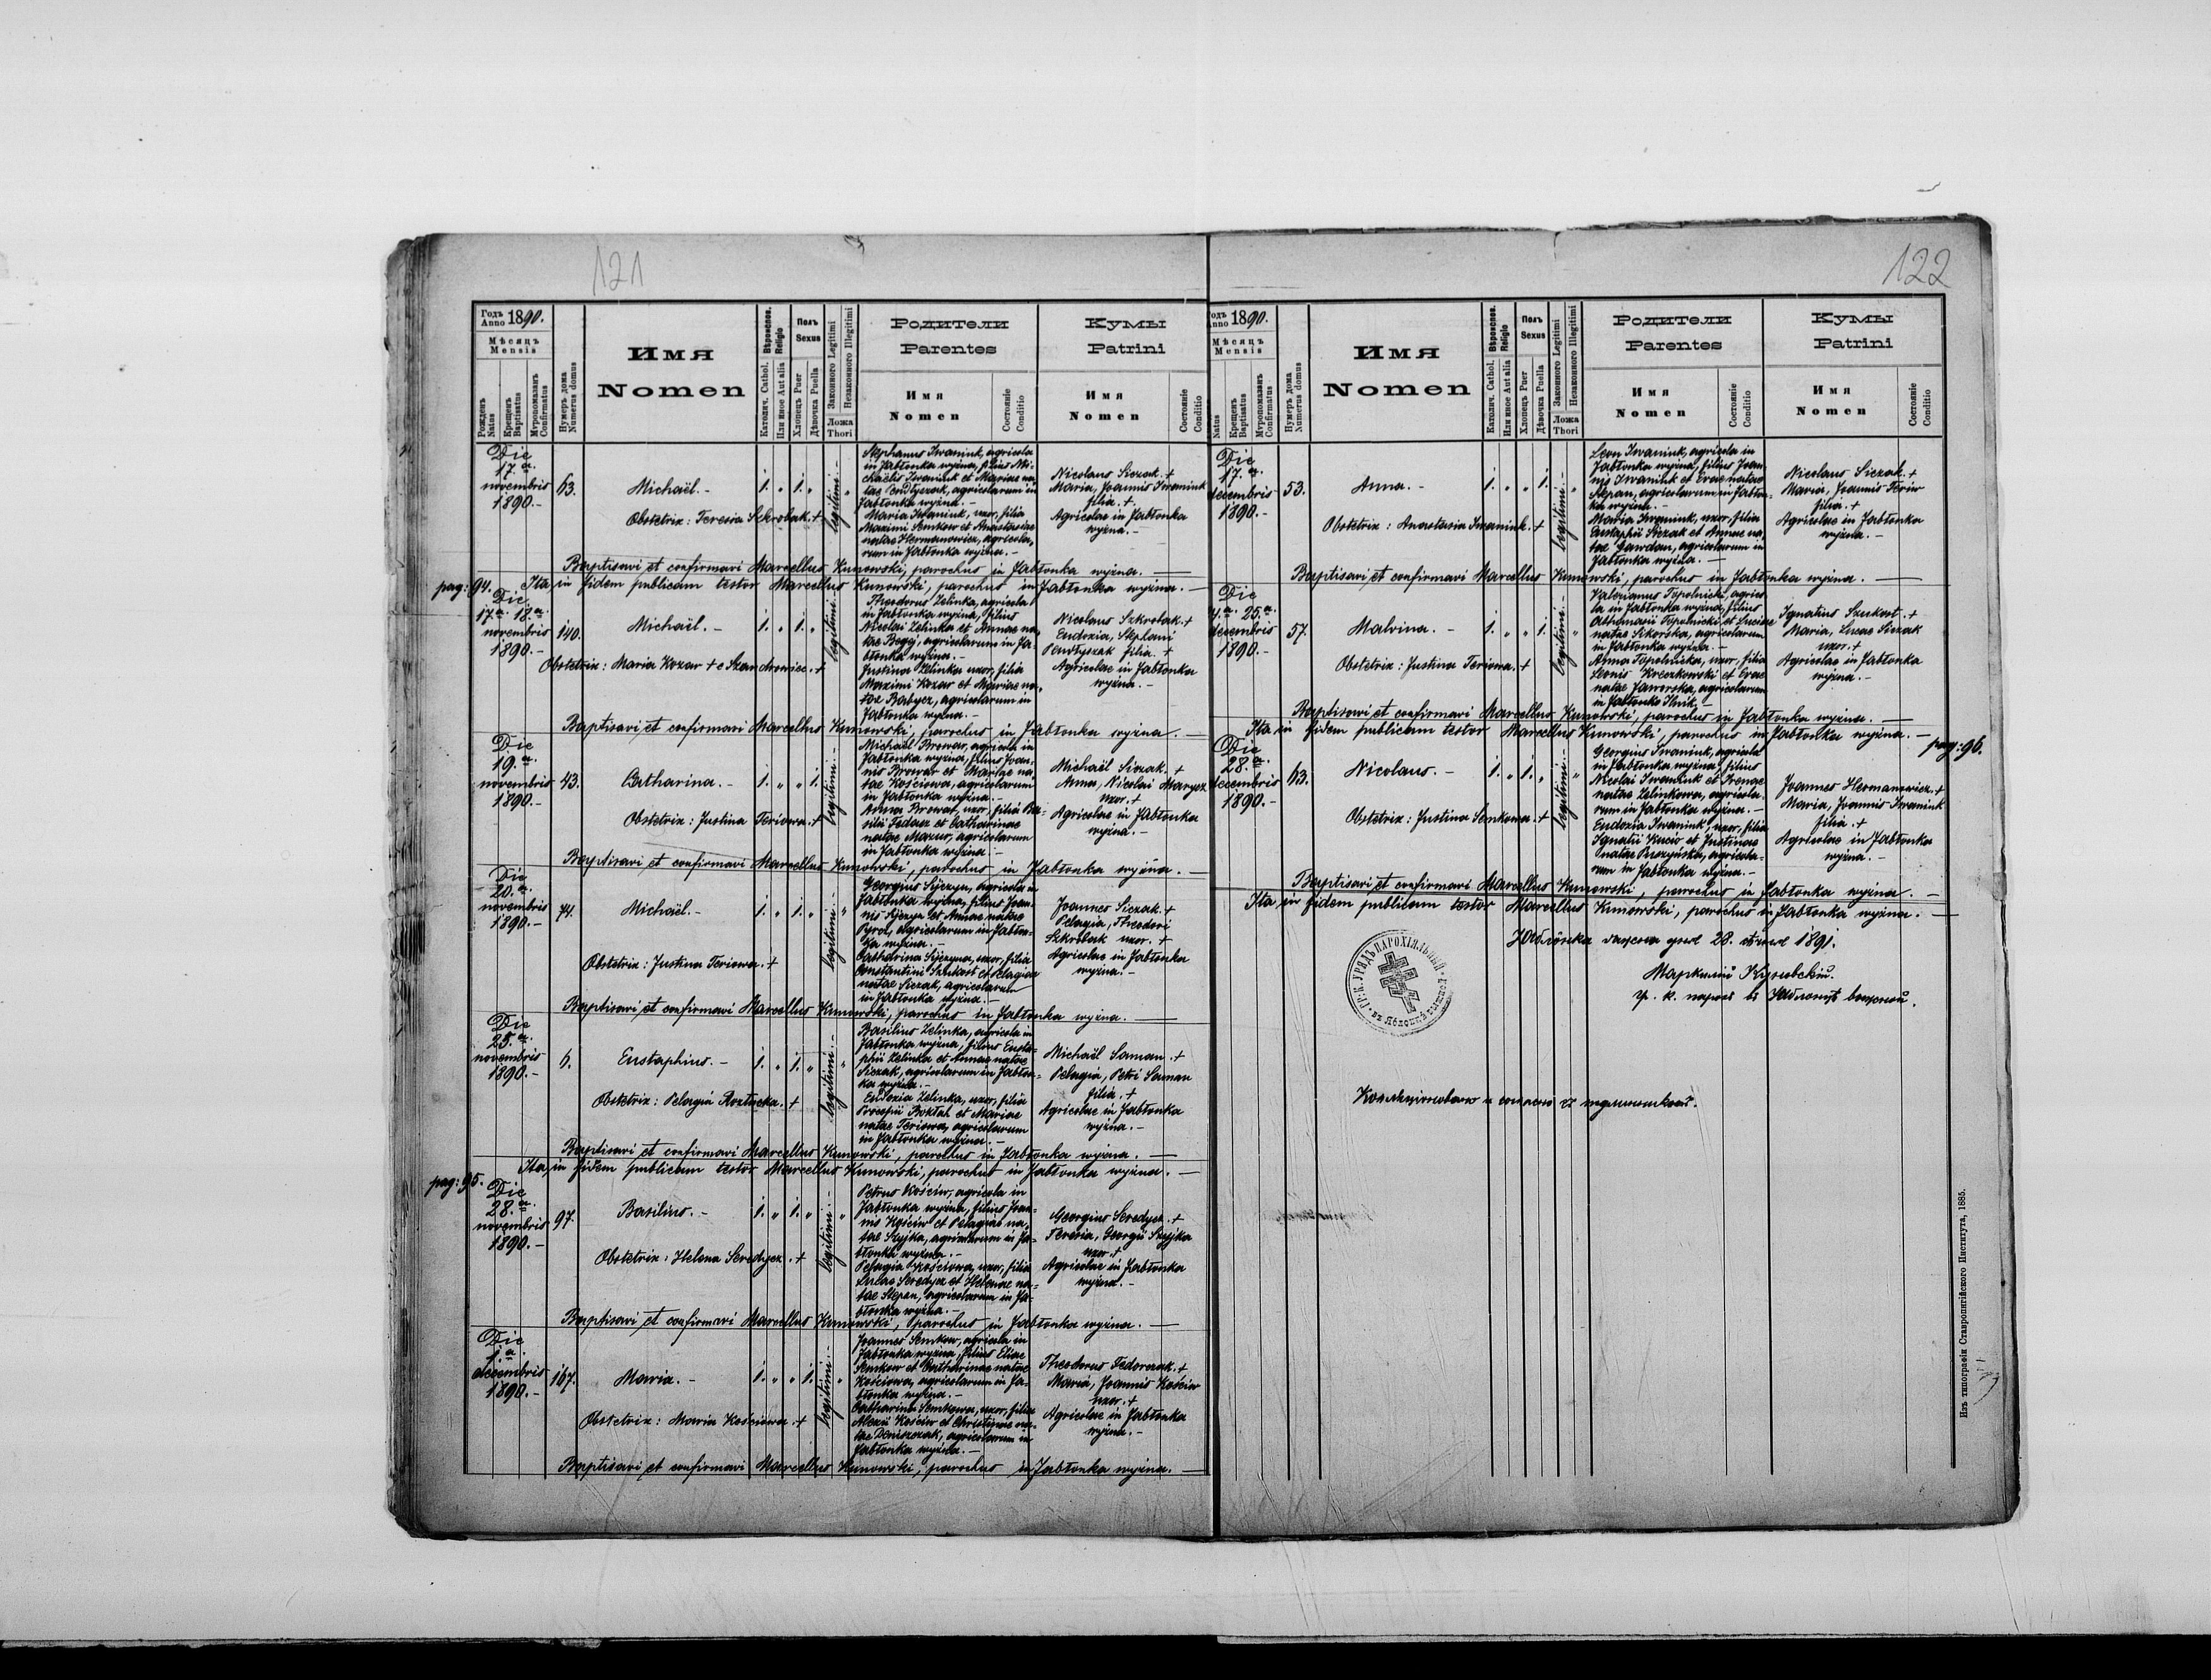 121
Годъ Anno 1890.
Мѣсяцъ
Mensis
Рожденъ Natus
Крещенъ Baptisatus
Мѵропомазанъ Confirmatus
Нумеръ дома Numerus domus
Имя
Nomen
Вѣроиспов. Religio
Католич. Cathol.
Или иное Aut alia
Полъ Sexus
Хлопецъ Puer
Дѣвочка Puella
Законного Legitimi
Незаконного Illegitimi
Ложа Thori
Родители
Parentes
Имя
Nomen
Состояніе
Conditio
Кумы
Patrini
Имя
Nomen
Состояніе
Conditio
Die
17.a
novembris
1890.-
63.
Michaël.-
1. " 1. "
legitimi.-
Obstetrix: Teresia Szkrobak.+
Stephanus Iwaniuk, agricola
in Jabłonka wyżna, filius Mi-
chaëlis Iwaniuk et Mariae na-
tae Pendyszak, agricolarum in
Jabłonka wyżna.-
Maria Iwaniuk, uxor, filia
Maximi Semkow et Anastasiae
natae Hermanowicz, agricola-
rum in Jabłonka wyżna.-
Nicolaus Siczak.+
Maria, Joannis Iwaniuk
filia.+
Agricolae in Jabłonka
wyżna.-
Baptisavi et confirmavi Marcellus Kunowski, parochus in Jabłonka wyżna.
pag: 94. Ita in fidem publicam testor Marcellus Kunowski, parochus in Jabłonka wyżna.
Die
17.a 18.a
novembris
1890.-
140.
Michaël.-
1. " 1. "
legitimi.-
Obstetrix: Maria Kozar + e Szandrowiec.+
Theodorus Zelinka, agricola
in Jabłonka wyżna, filius
Nicolai Zelinka et Annae na-
tae Begej, agricolarum in Ja-
błonka wyżna.-
Justina Zelinka uxor, filia
Maximi Kozar et Mariae na-
tae Babycz, agricolarum in
Jabłonka wyżna.-
Nicolaus Szkrobak.+
Eudoxia, Stephani
Pendyszak filia.+
Agricolae in Jabłonka
wyżna.-
Baptisavi et confirmavi Marcellus Kunowski, parochus in Jabłonka wyżna.
Die
19.a
novembris
1890.-
43.
Catharina.-
1. " " 1.
legitimi.-
Obstetrix: Justina Teriowa.+
Michaël Browar, agricola in
Jabłonka wyżna, filius Joan-
nis Browar et Mariae na-
tae Kościowa, agricolarum
in Jabłonka wyżna.-
Anna Browar, uxor, filia Ba-
silii Fedacz et Catharinae
natae Mazur, agricolarum
in Jabłonka wyżna.-
Michaël Siczak.+
Anna, Nicolai Marycz
uxor.+
Agricolae in Jabłonka
wyżna.-
Baptisavi et confirmavi Marcellus Kunowski, parochus in Jabłonka wyżna.
Die
20.a
novembris
1890.-
74.
Michaël.-
1. " 1. "
legitimi.-
Obstetrix: Justina Teriowa.+
Georgius Syczyn, agricola in
Jabłonka wyżna, filius Joan-
nis Syczyn et Annae natae
Pyrcz, agricolarum in Jabłon-
ka wyżna.-
Catharina Syczyna, uxor, filia
Constantini Szukast et Pelagiae
natae Siczak, agricolarum
in Jabłonka wyżna.-
Joannes Siczak.+
Pelagia, Theodori
Szkrobak uxor.+
Agricolae in Jabłonka
wyżna.-
Baptisavi et confirmavi Marcellus Kunowski, parochus in Jabłonka wyżna.
Die
25.a
novembris
1890.-
6.
Eustaphius.-
1. " 1. "
legitimi.-
Obstetrix: Pelagia Roztocka.+
Basilius Zelinka, agricola in
Jabłonka wyżna, filius Eusta-
phii Zelinka et Annae natae
Siczak, agricolarum in Jabłon-
ka wyżna.-
Eudoxia Zelinka, uxor, filia
Procopii Boktah et Mariae
natae Teriowa, agricolarum
in Jabłonka wyżna.-
Michaël Saman.+
Pelagia, Petri Saman
filia.+
Agricolae in Jabłonka
wyżna.-
Baptisavi et confirmavi Marcellus Kunowski, parochus in Jabłonka wyżna.
pag: 95. Ita in fidem publicam testor Marcellus Kunowski, parochus in Jabłonka wyżna.
Die
28.a
novembris
1890.-
97.
Basilius.-
1. " 1. "
legitimi.-
Obstetrix: Helena Seredycz.+
Petrus Kościw, agricola in
Jabłonka wyżna, filius Joan-
nis Kościw et Pelagiae na-
tae Szyjka, agricolarum in Ja-
błonka wyżna.-
Pelagia Kościowa, uxor, filia
Lucae Seredycz et Helenae na-
tae Stepan, agricolarum in Ja-
błonka wyżna.-
Georgius Seredycz.+
Teresia, Georgii Szyjka
uxor.+
Agricolae in Jabłonka
wyżna.-
Baptisavi et confirmavi Marcellus Kunowski, parochus in Jabłonka wyżna.
Die
1.a
decembris
1890.-
167.
Maria.-
1. " " 1.
legitimi.-
Obstetrix: Maria Kościowa.+
Joannes Semkow, agricola in
Jabłonka wyżna, filius Eliae
Semkow et Catharinae natae
Kościowa, agricolarum in Ja-
błonka wyżna.-
Catharina Semkowa, uxor, filia
Alexii Kościw et Christinae na-
tae Deniszczak, agricolarum in
Jabłonka wyżna.-
Theodorus Fedorczak.+
Maria, Joannis Kościw
uxor.+
Agricolae in Jabłonka
wyżna.-
Baptisavi et confirmavi Marcellus Kunowski, parochus in Jabłonka wyżna.
122
Годъ Anno 1890.
Мѣсяцъ
Mensis
Natus
Крещенъ Baptisatus
Мѵропомазанъ Confirmatus
Нумеръ дома Numerus domus
Имя
Nomen
Вѣроиспов. Religio
Католич. Cathol.
Или иное Aut alia
Полъ Sexus
Хлопецъ Puer
Дѣвочка Puella
Законного Legitimi
Незаконного Illegitimi
Ложа Thori
Родители
Parentes
Имя
Nomen
Состояніе
Conditio
Кумы
Patrini
Имя
Nomen
Состояніе
Conditio
Die
17.a
decembris
1890.-
53.
Anna.-
1. " " 1.
legitimi.-
Obstetrix: Anastasia Iwaniuk.+
Leon Iwaniuk, agricola in
Jabłonka wyżna, filius Joan-
nis Iwaniuk et Evae natae
Stepan, agricolarum in Jabłon-
ka wyżna.-
Maria Iwaniuk, uxor, filia
Eustaphii Siczak et Annae na-
tae Gawdan, agricolarum in
Jabłonka wyżna.-
Nicolaus Siczak.+
Maria, Joannis Teriw
filia.+
Agricolae in Jabłonka
wyżna.-
Baptisavi et confirmavi Marcellus Kunowski, parochus in Jabłonka wyżna.
Die
4.a 25.a
decembris
1890.-
57.
Malvina.-
1. " " 1.
legitimi.-
Obstetrix: Justina Teriowa.+
Valerianus Topolnicki, agrico-
la in Jabłonka wyżna, filius
Athanasii Topolnicki et Luciae
natae Sikorska, agricolarum
in Jabłonka wyżna.-
Anna Topolnicka, uxor, filia
Leonis Kreczkowski et Evae
natae Jaworska, agricolarum
in Jabłonka Ilnik.-
Ignatius Szukast.+
Maria, Lucae Siczak
uxor.+
Agricolae in Jabłonka
wyżna.-
Baptisavi et confirmavi Marcellus Kunowski, parochus in Jabłonka wyżna.
Ita in fidem publicam testor Marcellus Kunowski, parochus in Jabłonka wyżna.
pag: 96.
Die
28.a
decembris
1890.-
63.
Nicolaus.-
1. " 1. "
legitimi.-
Obstetrix: Justina Semkowa.+
Georgius Iwaniuk, agricola
in Jabłonka wyżna, filius
Nicolai Iwaniuk et Irenae
natae Zelinkowa, agricola-
rum in Jabłonka wyżna.-
Eudoxia Iwaniuk, uxor, filia
Ignatii Kuciw et Justinae
natae Puszyńska, agricola-
rum in Jabłonka wyżna.-
Joannes Hermanowicz.+
Maria, Joannis Iwaniuk
filia.+
Agricolae in Jabłonka
wyżna.-
Baptisavi et confirmavi Marcellus Kunowski, parochus in Jabłonka wyżna.
Ita in fidem publicam testor Marcellus Kunowski, parochus in Jabłonka wyżna.
28. 1891.
Маркелій Куновскій.
ГР. К. УРЯДЪ ПАРОХІЯЛЬНЫЙ
Изъ типографіи Ставропигійского Института, 1885.